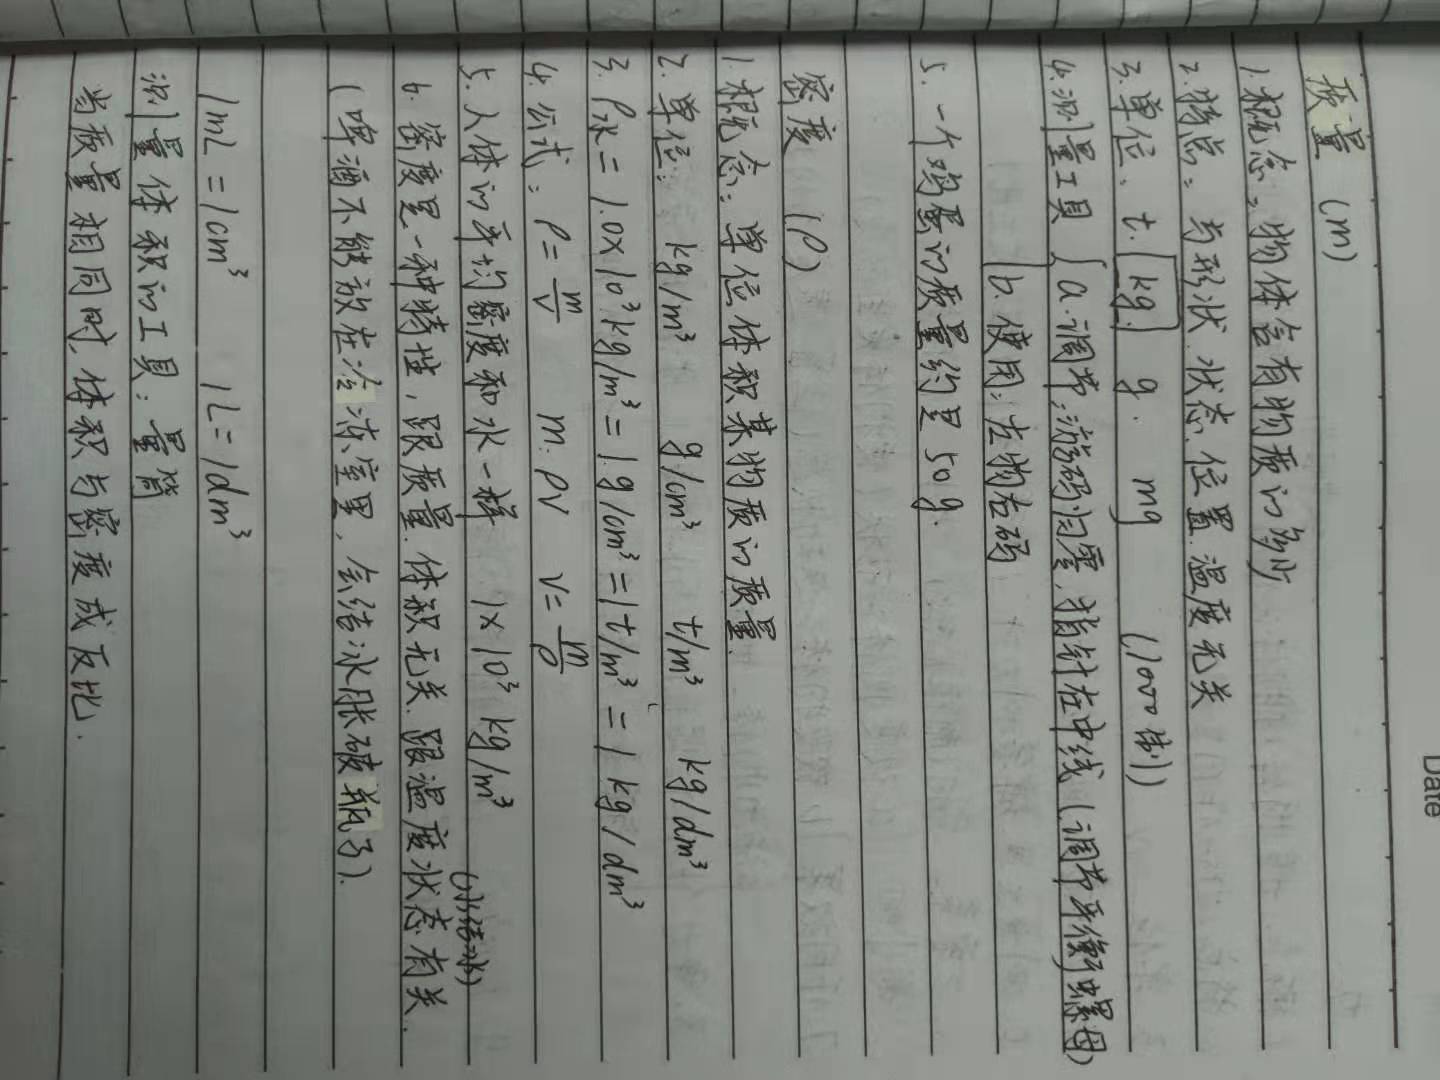 Date
质量 (m)
1.概念:物体含有物质的多少
2.特点:与形状.状态.位置.温度无关
3.单位、t. kg. g. mg (1000制)
4.测量工具 { a.调节:游码归零,指针在中线(调节平衡螺母)
b.使用:左物右码
5.一个鸡蛋的质量约是50g.
密度 (ρ)
1.概念:单位体积某物质的质量.
2.单位: kg/m³ g/cm³ t/m³ kg/dm³
3.ρ水=1.0×10³kg/m³=1g/cm³=1t/m³=1kg/dm³
4.公式:ρ=m/V m:ρV V=m/ρ
5.人体的平均密度和水一样 1×10³ kg/m³
(水结冰)
6.密度是一种特性,跟质量.体积无关.跟温度状态有关.
(啤酒不能放在冷冻室里,会结冰胀破瓶子).
1mL=1cm³ 1L=1dm³
测量体积的工具:量筒
当质量相同时,体积与密度成反比.